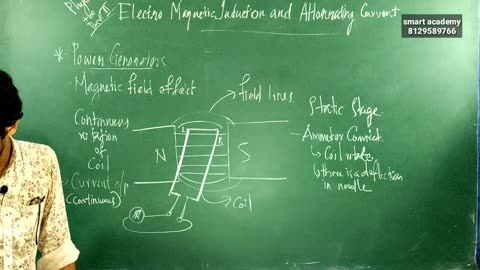 smart academy
8129589766
Physics
Part II
Electro Magnetic Induction and Alternating Current
* Power Generators
Magnetic field effect
field lines
Continuous
rotation
of
Coil
Current o/p
(Continuous)
N
S
L
R
Coil
Static Stage
Ammeter Connect
Coil rotate
there is a deflection
in needle